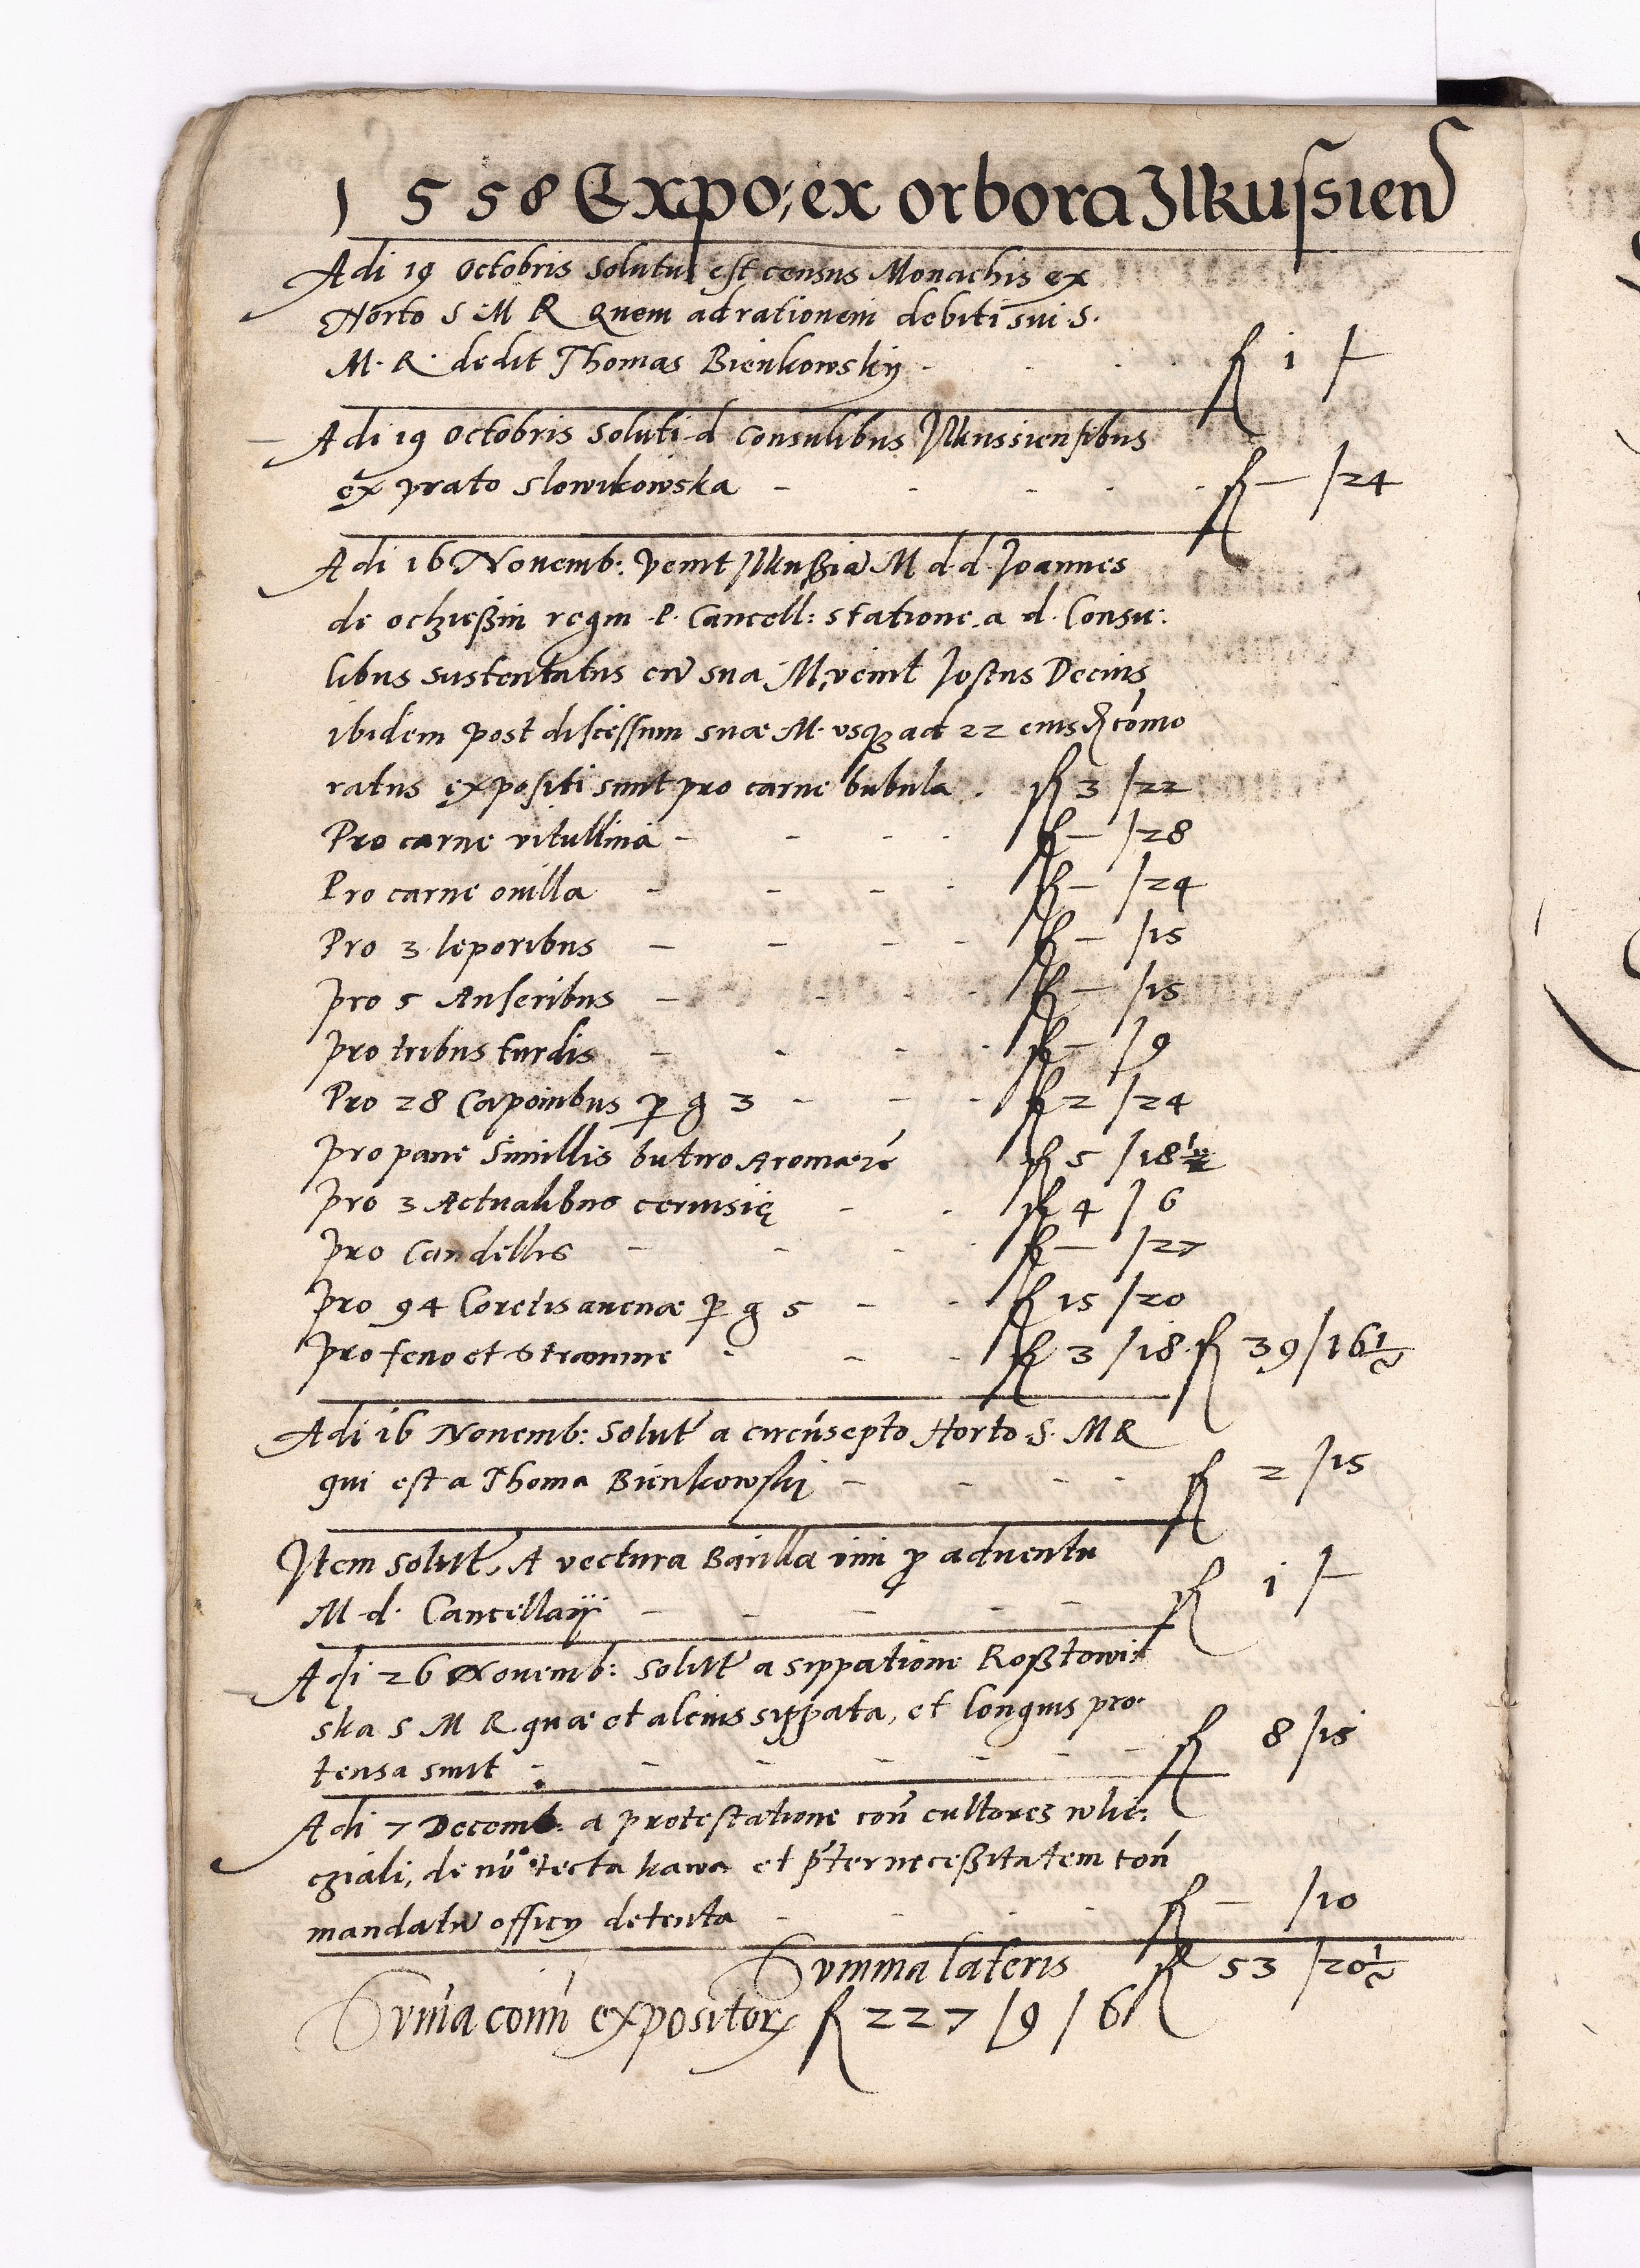 1558 Expo: ex orbora Ilkussien
Adi 19 Octobris Solutus est census Monachis ex
Horto S M R Quem ad rationem debiti sui S.
M. R. dedit Thomas Bienkowskÿ - fl 1 /-
Adi 19 Octobris Soluti d Consulibus Ilkussiensibus
ex prato Slowikowska - fl - /24
Adi 16 Nouemb: venit Ilkußia M d. d. Joannes
de ocżießin regni P. Cancell: statione a d. Consu:
libus sustentatus cū sua M, venit Jostus Decius
ibidem post discessum suæ M. usq; ad 22 eiusđ cōmo
ratus expositi sunt pro carne bubula . fl 3 /22
Pro carne vitullina - fl - /28
Pro carne ouilla - fl - /24
Pro 3 leporibus - fl - /15
pro 5 Anseribus - fl - /15
pro tribus turdis - fl - /9
Pro 28 Caponibus p g 3 - fl 2 /24
pro pane Simillis butiro Aromati fl 5 /18½
pro 3 Actualibus ceruisię - fl 4 / 6
pro Candellis - fl - /27
pro 94 Coretis auenæ p g 5 - fl 15 /20
pro feno et Stramine - fl 3 /18 fl 39 /16½
Adi 16 Nouemb: Solut a circūsepto Horto S. M R
qui est a Thoma Bienkowskj - fl 2 /15
Item Solut, A vectura Barilla vini p aduentu
M. d. Cancellarÿ - fl 1 /-
Adi 26 Nouemb: Solut a sippatione Roßtowi
ska S M R quæ et alcius sippata, et longius pro
tensa sunt - fl 8 /15
Adi 7 Decemb: a protestatione con cultores
cziali, de tecta kawa et p̄ter necessitatem con
mandatū officÿ detenta - fl - /10
Summa lateris fl 53 /20½
Suma coim expositor fl 227 /9 /6